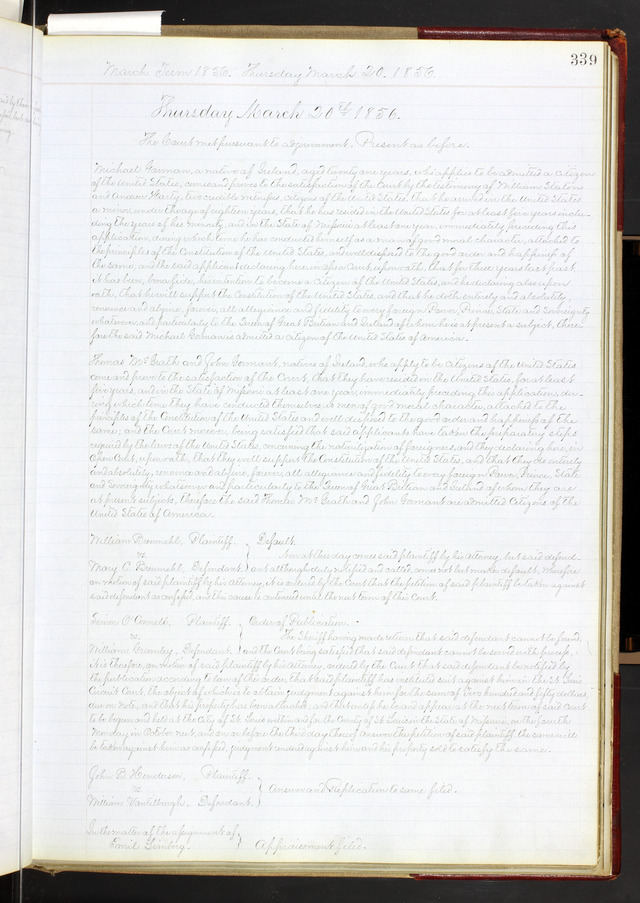 339
March Term 1856. Thursday March 20. 1856.
Thursday March 20th 1856.
The Court met pursuant to adjournment, Present as before.
Michael Gorman, a native of Ireland, aged twenty one years, who applies to be admitted a citizen
of the United States, comes and proves to the satisfaction of the Court by the testimony of William
and Andrew two credible witnesses, citizens of the United States, that he arrived in the United States
a minor, under the age of eighteen years, that he has resided in the United States for at least five years inclu-
ding the years of his minority, and in the State of Missouri at least one year, immediately preceding this
application, during which time he has conducted himself as a man of good moral character, attached to
the principles of the Constitution of the United States, and well disposed to the good order and happiness of
the same, and the said applicant declaring here in open Court, upon oath, that for three years last past
it has been, bonafide, his intention to become a citizen of the United States, and he declaring also upon
oath, that he will support the Constitution of the United States, and that he doth entirely and absolutely
renounce and abjure, forever, all allegiance and fidelity to every foreign Power, Prince, State and Sovereignty
whatever, and particularly to the Queen of Great Britian and Ireland of whom he is at present a subject, there-
fore the said Michael Gorman is admitted a citizen of the United States of America.
Thomas McGrath and John natives of Ireland, who apply to be citizens of the United States
come and prove to the satisfaction of the Court, that they have resided in the United States, for at least
five years, and in the State of Missouri at least one year, immediately preceding the applications, du-
ring which time they have conducted themselves as men of good moral character, attached to the
principles of the Constitution of the United States and well disposed to the good order and happiness of the
same; and the Court moreover, being satisfied that said applicants have taken the preparatory steps
required by the laws of the United States, concerning the naturalization of foreigners, and they declaring here, in
open Court, upon oath, that they will support the Constitution of the United States, and that they do entirely
and absolutely, renounce and abjure, forever, all allegiance and fidelity to every foreign Power, Prince, State
and Sovereignty whatever and particularly to the Queen of Great Britian and Ireland of whom they are
at present subjects, therefore the said Thomas McGrath and John are admitted Citizens of the
United States of America.
William Plaintiff. } Default.
vs. } Now at this day comes said plaintiff by his attorney, but said defend-
Mary C. Defendant. } ant although duly notified and called, comes not but makes default. Wherefore
on motion of said plaintiff by his attorney, it is ordered by the Court that the petition of said plaintiff be taken against
said defendant as confessed, and this cause is continued until the next term of this Court.
O'Connell, Plaintiff. } Order of Publication.
vs. } The Sheriff having made return that said defendant cannot be found,
William Defendant. } and the Court being satisfied that said defendant cannot be served with process,
it is therefore, on motion of said plaintiff by his attorney, ordered by the Court that said defendant be notified by
the publication according to law of the order, that said plaintiff has instituted suit against him in the St. Louis
Circuit Court, the object of which is to obtain judgment against him for the sum of Five hundred and fifty dollars,
due on note, and that his property has been attached, and that unless he be and appear at the next term of said Court
to be begun and held at the City of St. Louis within and for the County of St. Louis in the State of Missouri, on the fourth
Monday in October next, and on or before the third day thereof answer the petition of said plaintiff, the same will
be taken against him as confessed, judgment rendered against him and his property sold to satisfy the same.
John B. Henderson, Plaintiff. }
vs. } Answer and Replication to same filed.
William Defendant. }
In the matter of the assignment of }
Emile } Appraisement filed.